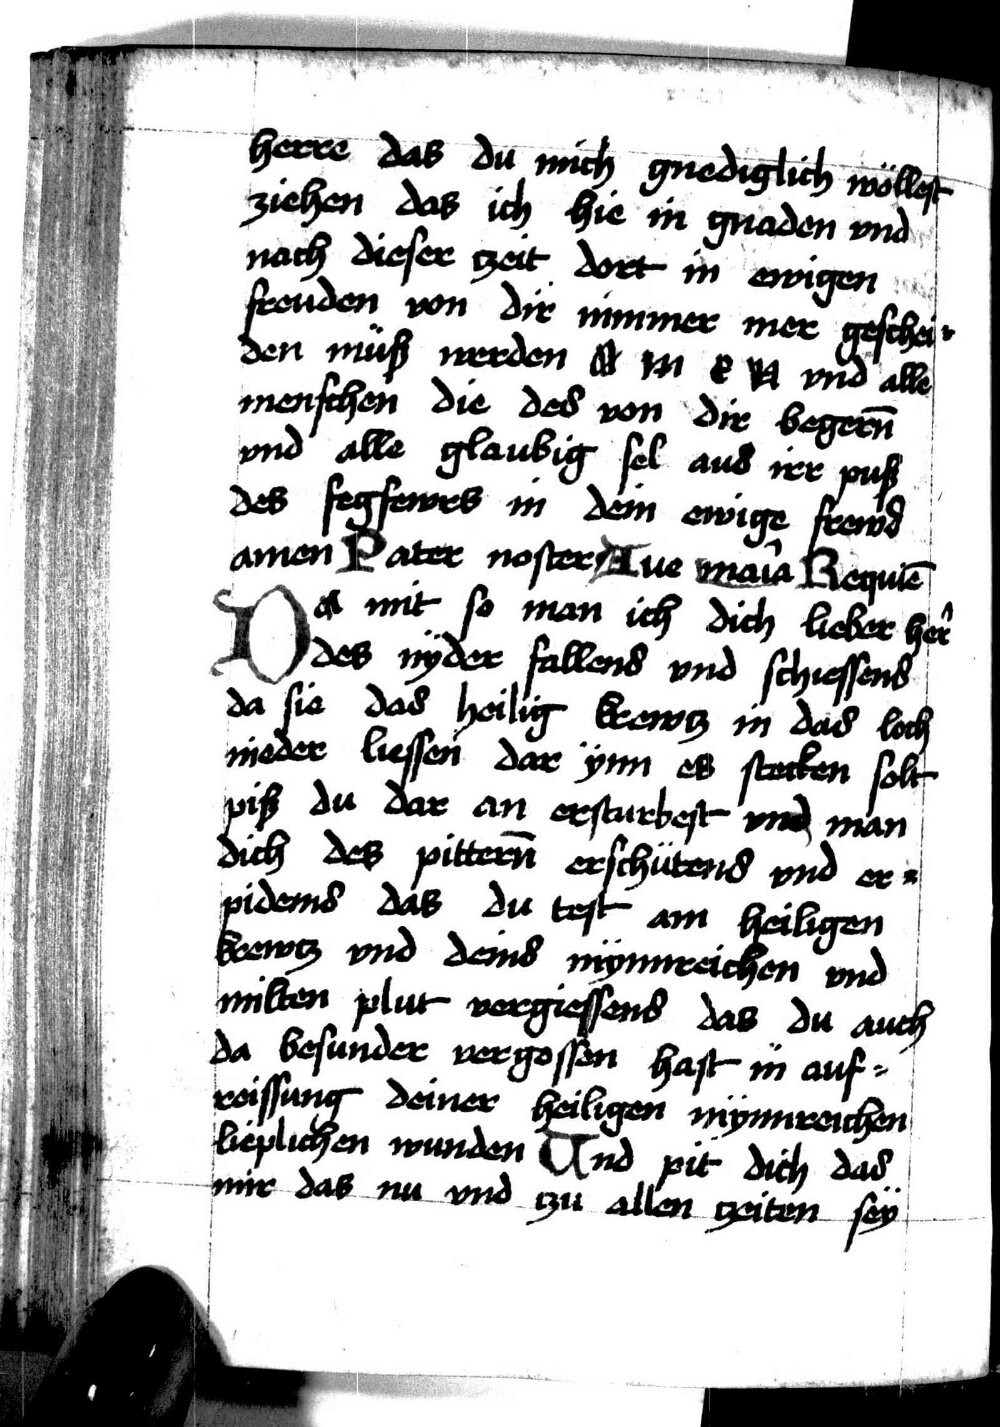 herre das du mich gnediglich wöllest
ziehen das ich hie in gnaden vnd
nach dieser zeit dort in ewigen
freuden von dir nimmer mer geschei-
den müß werden A M E N vnd alle
menschen die des von dir begern̄
vnd alle glaubig sel aus irr puß
des fegfewrs in dein ewige frewd
amen Pater noster Aue maria Requiē
Da mit so man ich dich lieber her
des nÿder fallens vnd schiessens
da sie das heilig krewtz in das loch
nieder liessen dar ÿnn es stecken solt
piß du dar an ersturbest vnd man
dich des pittern̄ erschütens vnd er=
pidems das du test am heiligen
krewtz vnd deins mÿnnreichen vnd
milten plut vergiessens das du auch
da besunder vergossen hast in auf=
reissung deiner heiligen mÿnnreichen
lieplichen wunden Und pit dich das
mir das nu vnd tzu allen tzeiten seÿ